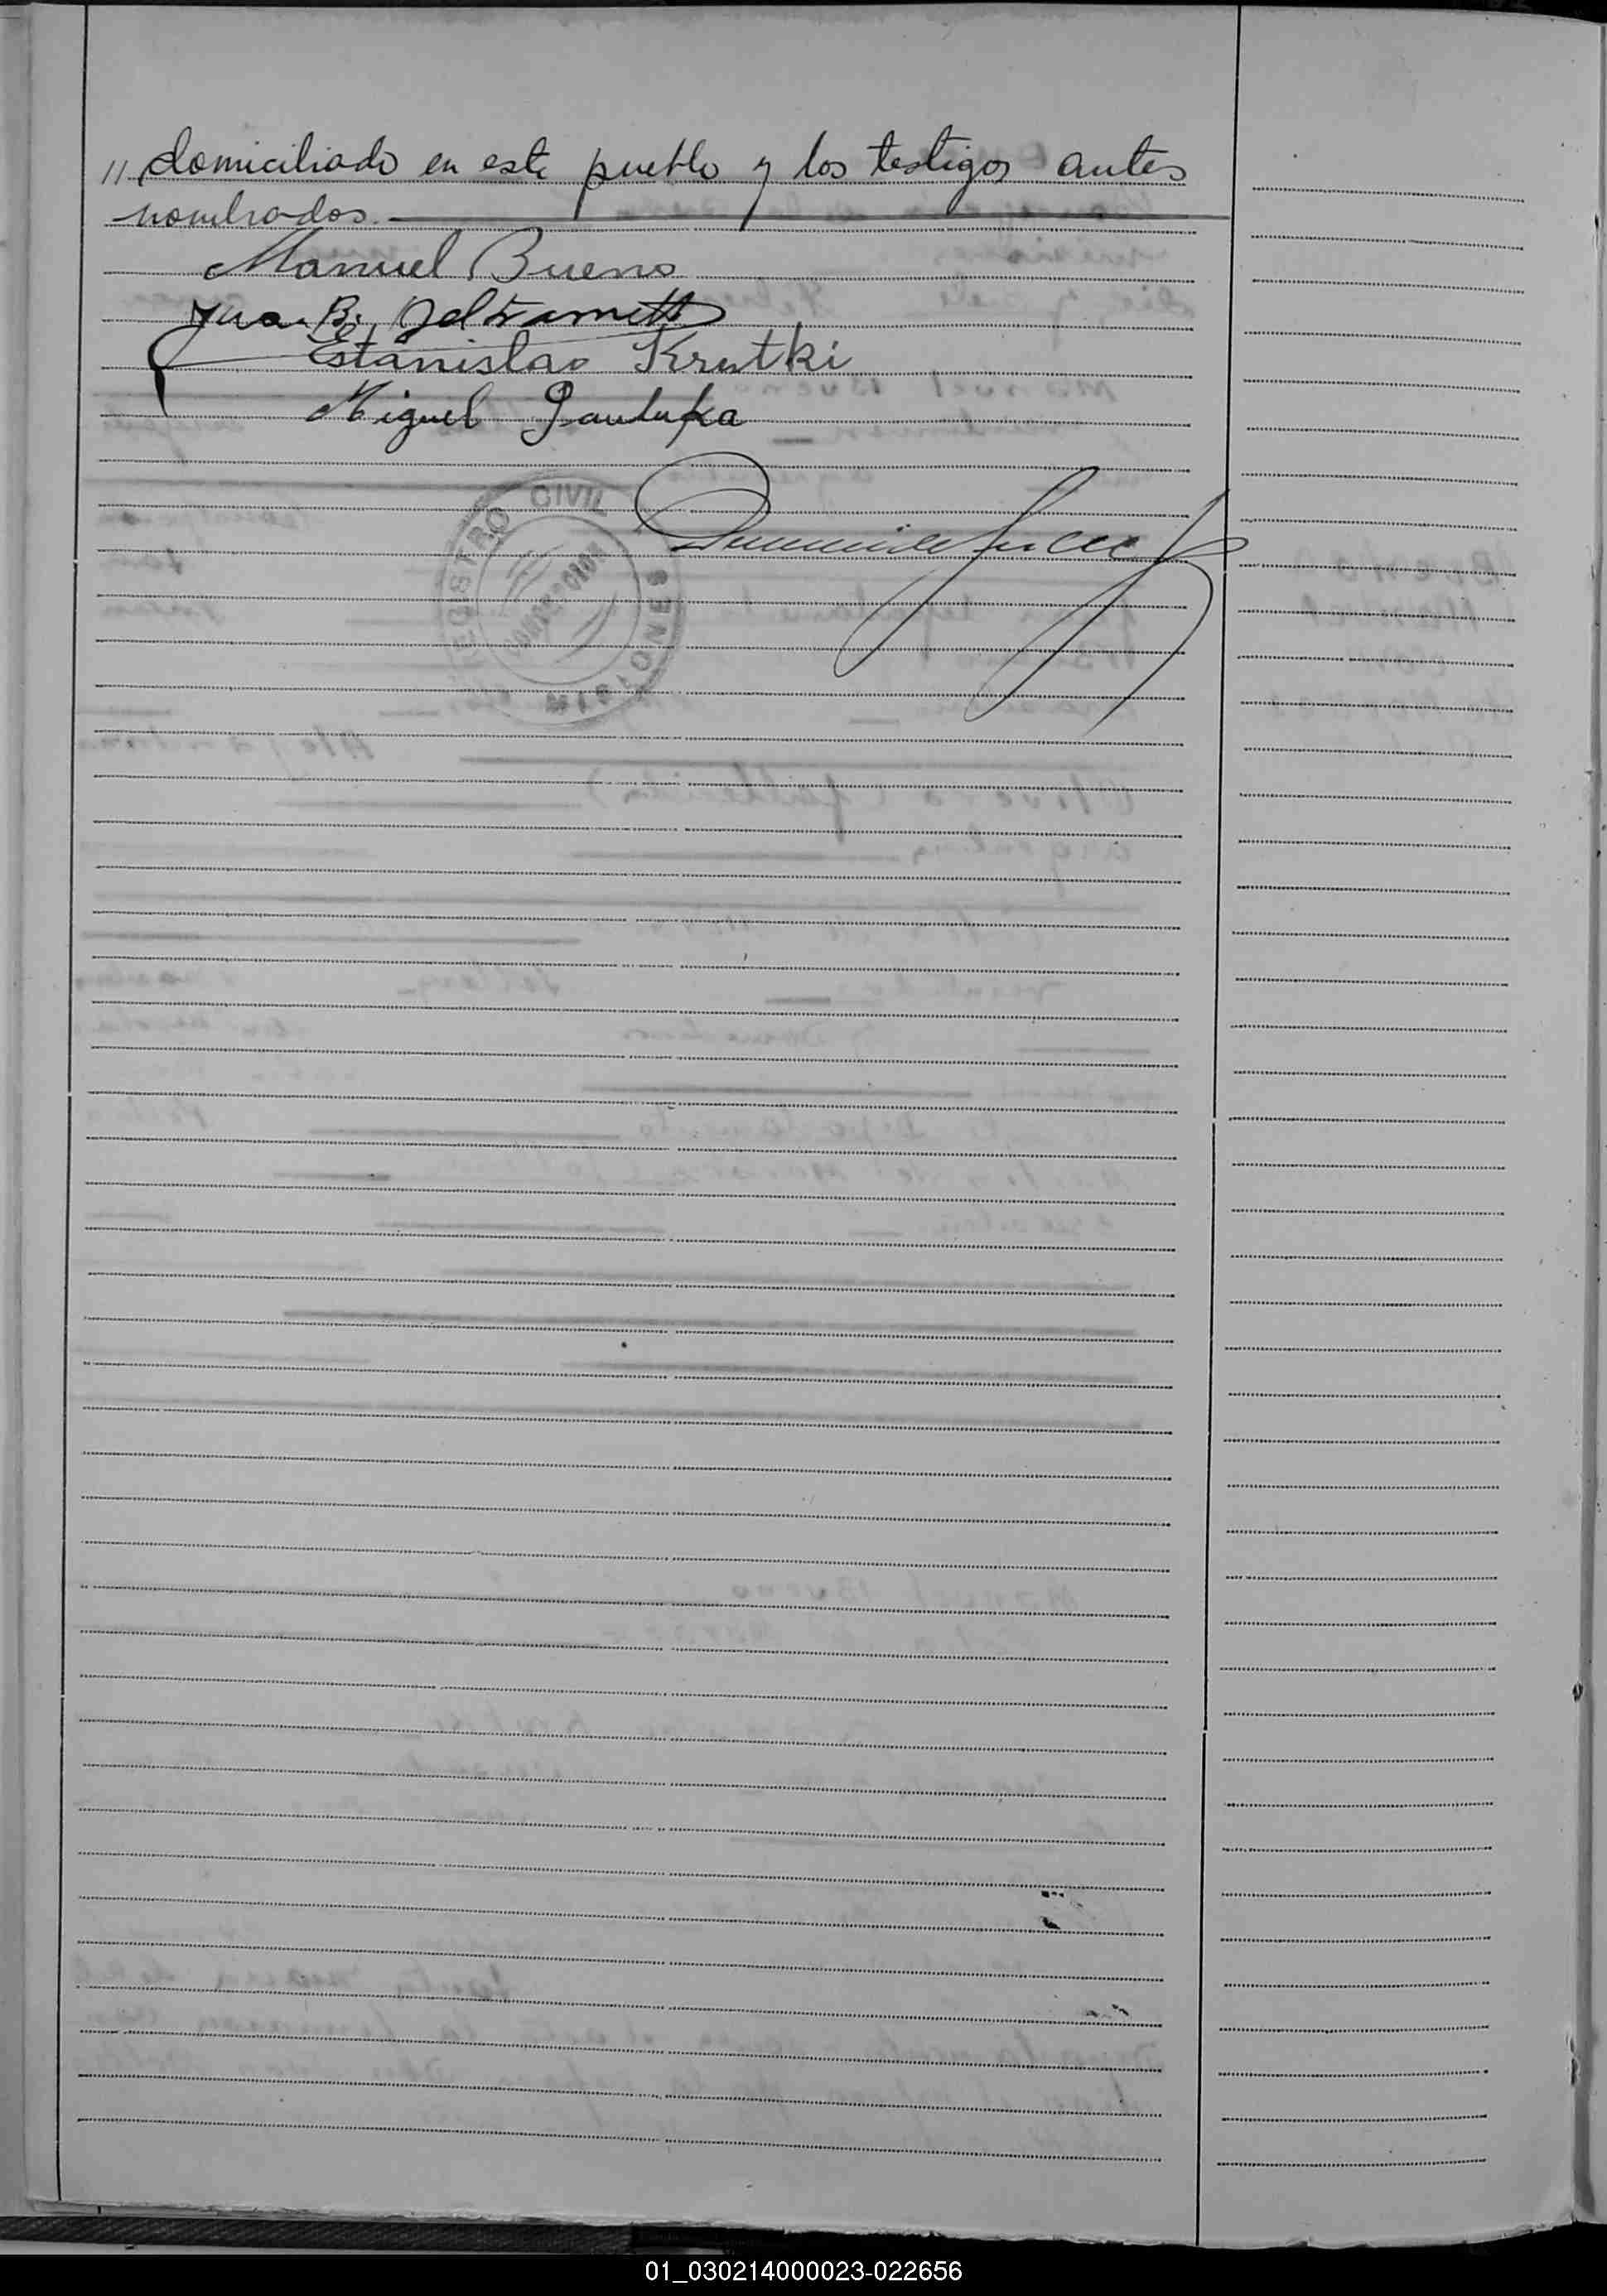 // domiciliado en este pueblo y los testigos antes
nombrados.
Manuel Bueno
Juan B. Beltrametti
Estanislao Krutki
Miguel
REGISTRO CIVIL
CONCEPCION
MISIONES
01_030214000023-022656